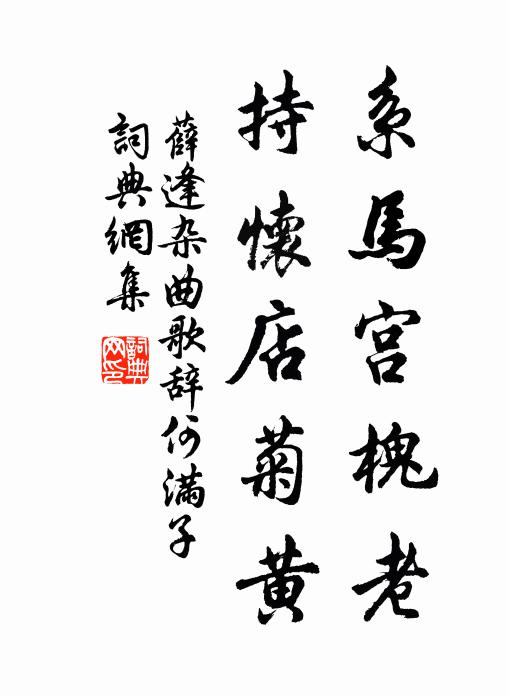 系馬宮槐老
持懷店菊黃
薛逢杂曲歌辞何满子
詞典網集
詞典
网印